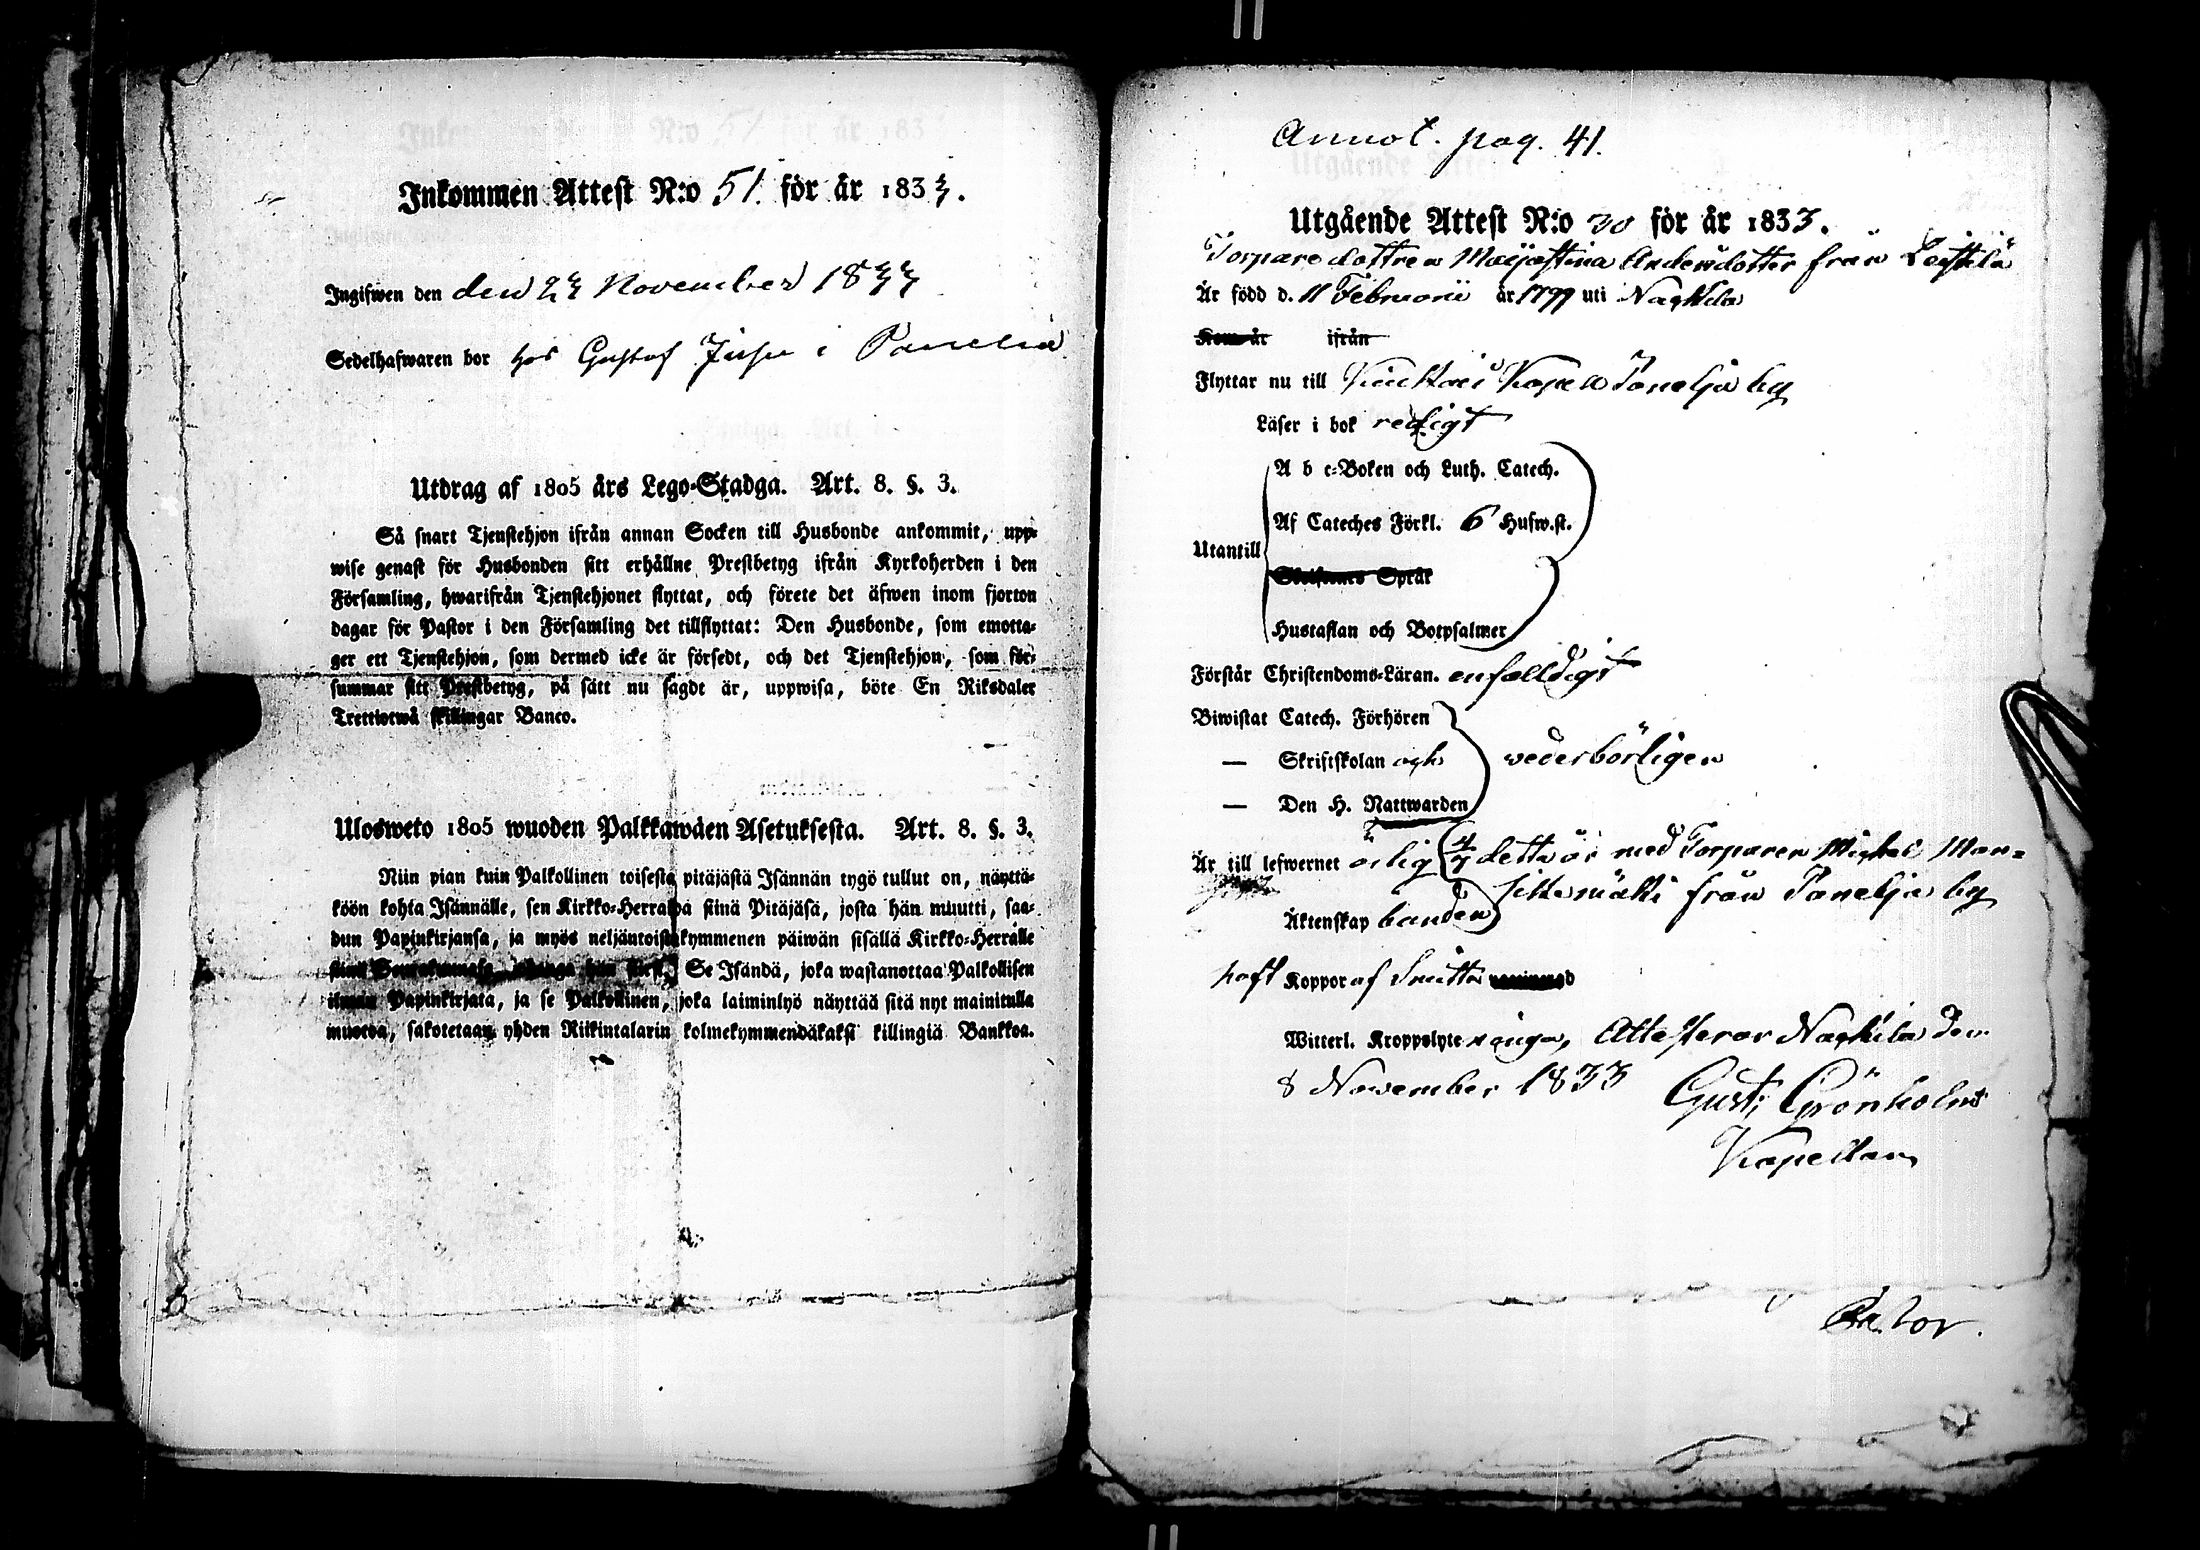 Inkommen Attest N:o 51. för år 1833.
Ingifwen den den 23 November 1833
Sedelhafwaren bor hos Gustaf i Panelia
Utdrag af 1805 års Lego-Stadga. Art. 8. §. 3.
Så snart Tjenstehjon ifrån annan Socken till Husbonde ankommit, upp-
wise genast för Husbonden sitt erhållne Prestbetyg ifrån Kyrkoherden i den
Församling, hwarifrån Tjenstehjonet flyttat, och förete det äfwen inom fjorton
dagar för Pastor i den Församling det tillflyttat: Den Husbonde, som emotta-
ger ett Tjenstehjon, som dermed icke är försedt, och det Tjenstehjon, som för-
summar sitt Prestbetyg, på sätt nu sagdt är, uppwisa, böte En Riksdaler
Trettiotwå skillingar Banco.
Ulosweto 1805 wuoden Palkkawäen Asetuksesta. Art. 8. §. 3.
Niin pian kuin Palkollinen toisesta pitäjästä Isännän tygö tullut on, näyttä-
köön kohta Isännälle, sen Kirkko-Herralda siinä Pitäjäsä, josta hän muutti, saa-
dun Papinkirjansa, ja myös neljäntoistakymmenen päiwän sisällä Kirkko-Herralle
siinä Seurakunnasa, Se Isändä, joka wastanottaa Palkollisen
ilman Papinkirjata, ja se Palkollinen, joka laiminlyö näyttää sitä nyt mainitulla
muotoa, sakotetaan yhden Riikintalarin kolmekymmendäkaksi killingiä Bankkoa.
Annot. pag. 41.
Utgående Attest N:o 30 för år 1833.
Torparedottren Majastina Andersdotter från Leistilä
Är född d. 11 Februarii år 1799 uti Nackila
Kom år ifrån
Flyttar nu till Kiukais Kapell Panelja by
Läser i bok redigt
A b c-Boken och Luth. Catech.
Af Cateches Förkl. 6 Husw.st.
Utantill
Skriftenes Språk
Hustaflan och Botpsalmer
Förstår Christendoms-Läran. enfalldigt
Biwistat Catech. Förhören
— Skriftskolan och wederbörligen
— Den H. Nattwarden
Är till lefwernet ärlig detta år med Torparen Michel Man-
från Panelja by
Äktenskap banden
haft Koppor af Smitta
Witterl. Kroppslyte inga, Attesterar Nackila den
8 November 1833 Gust: Grönholm
Kapellan
Pastor.